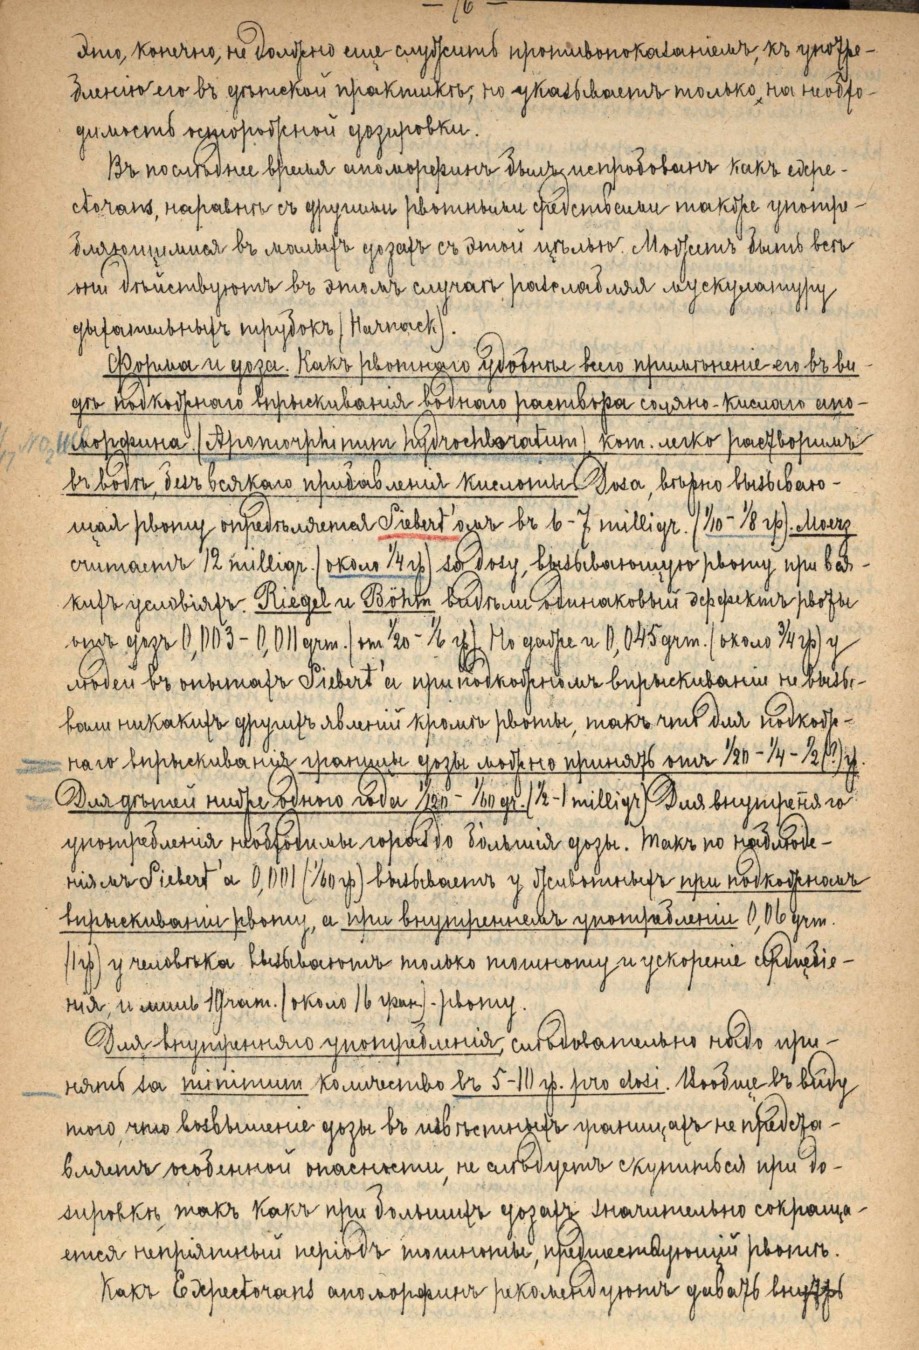 — 76 —
Это, конечно, не должно еще служить противопоказаніемъ, къ употре-
бленію его въ дѣтской практикѣ, но указываетъ только, на необхо-
димость осторожной дозировки.
Въ послѣднее время апоморфинъ былъ испробованъ какъ expe-
ctorans, наравнѣ съ другими рвотными средствами также употре-
бляющимися въ малыхъ дозахъ съ этой цѣлью. Можетъ быть всѣ
они дѣйствуютъ въ этомъ случаѣ разслабляя мускулатуру
дыхательныхъ трубокъ (Harnack).
Форма и доза. Какъ рвотнаго удобнѣе всего примѣненіе его въ ви-
дѣ подкожнаго впрыскиванія воднаго раствора соляно-кислаго апо-
морфина. (Apomorphinum hydrochloratum) кот. легко растворимъ
въ водѣ, безъ всякаго прибавленія кислоты. Доза, вѣрно вызываю-
щая рвоту опредѣляется Siebert'омъ въ 6-7 milligr. (1/10 - 1/8 гр). Moerz
считаетъ 12 milligr. (около 1/4 гр) за дозу, вызывающую рвоту при вся-
кихъ условіяхъ. Riegel и Böhm видѣли одинаковый эффектъ рвоты
отъ дозъ 0,003 - 0,011 grm. (от 1/20 - 1/6 гр). Но даже и 0,045 grm. (около 3/4 гр) у
людей въ опытахъ Siebert'а при подкожномъ впрыскиваніи не вызы-
вали никакихъ другихъ явленій кромѣ рвоты, такъ что для подкож-
наго впрыскиванія границы дозы можно принять отъ 1/20 - 1/4 - 1/2 (?) гр.
Для дѣтей ниже одного года 1/120 - 1/60 gr. (1/2 - 1 milligr) Для внутренняго
употребленія необходимы гораздо большія дозы. Такъ по наблюде-
ніямъ Siebert'а 0,001 (1/60 гр) вызываетъ у животныхъ при подкожномъ
впрыскиваніи рвоту, а при внутреннемъ употребленіи 0,06 grm.
(1 гр) у человѣка вызываютъ только тошноту и ускореніе сердцебіе-
нія, и лишь 1 gram. (около 16 гран) - рвоту.
Для внутренняго употребленія, слѣдовательно надо при-
нять за minimum количество въ 5-10 гр. pro dosi. Вообще въ виду
того, что возвышеніе дозы въ извѣстныхъ границахъ не предста-
вляетъ особенной опасности, не слѣдуетъ скупиться при до-
зировкѣ, такъ какъ при большихъ дозахъ значительно сокраща-
ется непріятный періодъ тошноты, предшествующій рвотѣ.
Какъ Expectorans апоморфинъ рекомендуютъ давать внутрь